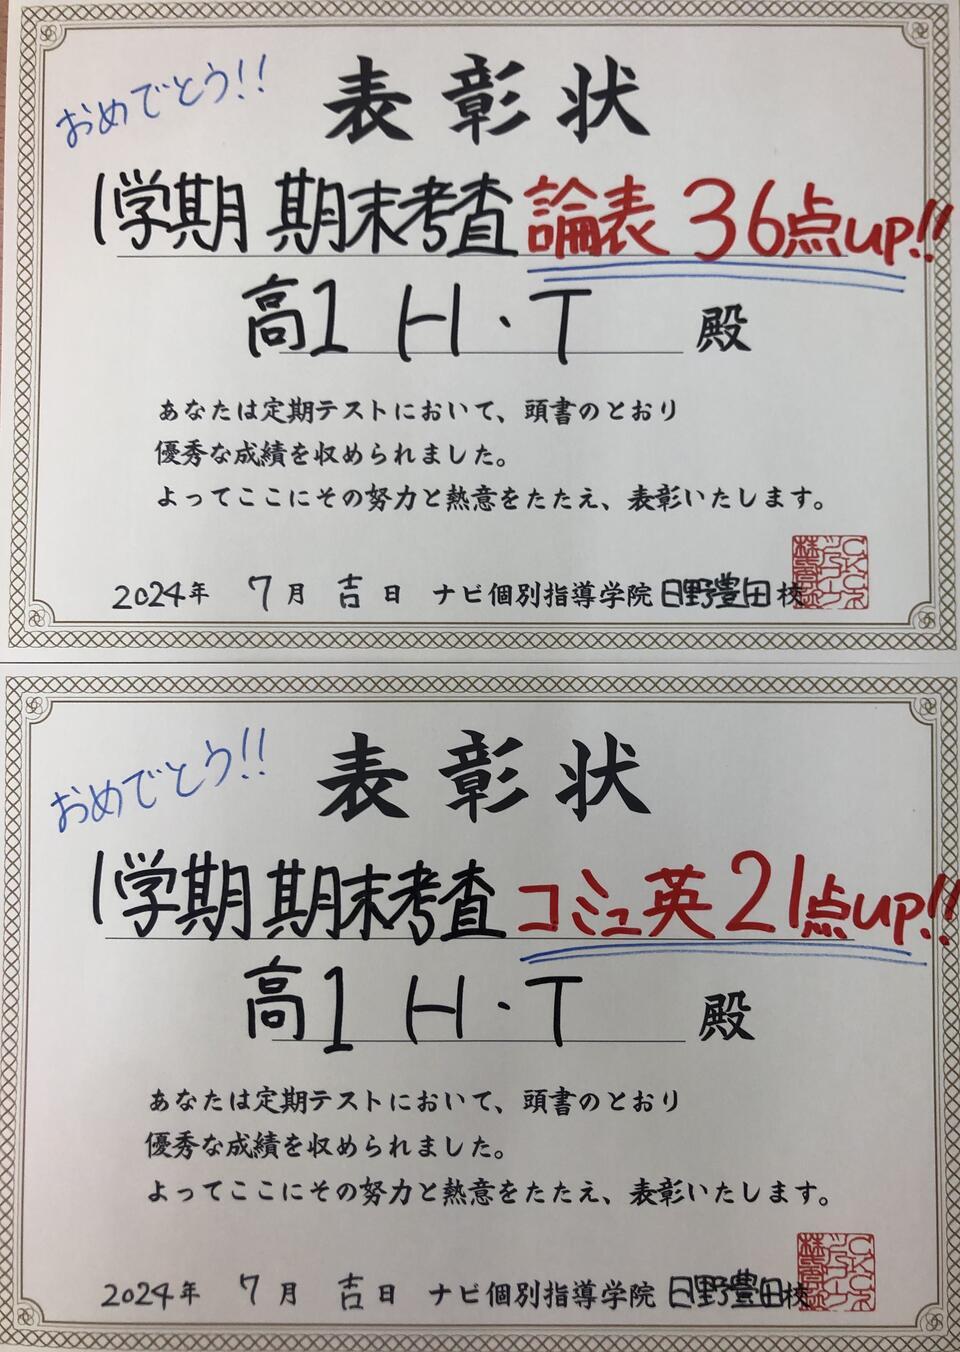 おめでとう!!
表彰状
1学期 期末考査 論表 36点up!!
高1 H・T 殿
あなたは定期テストにおいて、頭書のとおり
優秀な成績を収められました。
よってここにその努力と熱意をたたえ、表彰いたします。
2024年 7月 吉日 ナビ個別指導学院 日野豊田校
おめでとう!!
表彰状
1学期 期末考査 コミュ英 21点up!!
高1 H・T 殿
あなたは定期テストにおいて、頭書のとおり
優秀な成績を収められました。
よってここにその努力と熱意をたたえ、表彰いたします。
2024年 7月 吉日 ナビ個別指導学院 日野豊田校